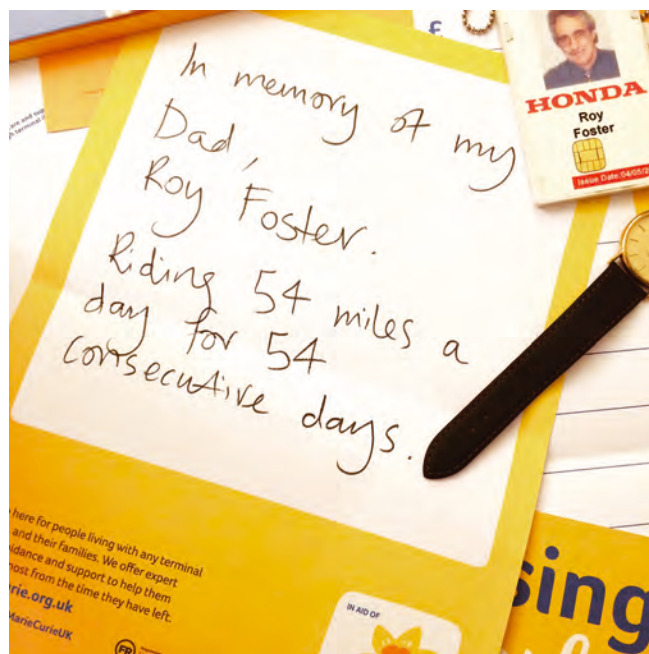 In memory of my
Dad,
Roy Foster.
Riding 54 miles a
day for 54
consecutive days.
£
HONDA
Roy
Foster
Issue Date:04/05/2
are and sup
here for people living with any terminal
and their families. We offer expert
idance and support to help them
most from the time they have left.
rie.org.uk
MarieCurieUK
FR
IN AID OF
sing